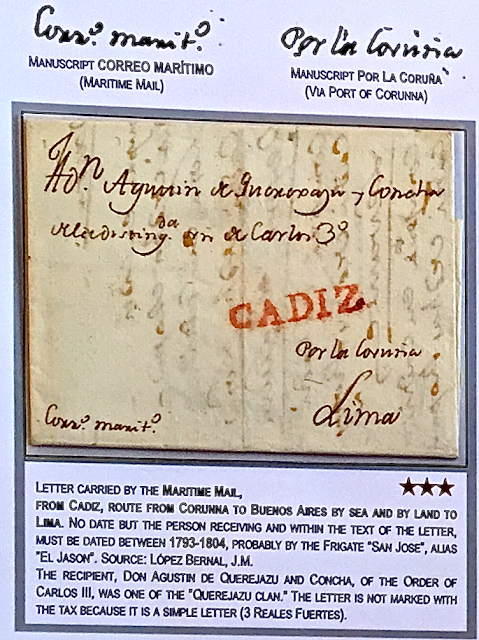 Corr.º marit.º
Por la Coruña
MANUSCRIPT CORREO MARÍTIMO
(MARITIME MAIL)
MANUSCRIPT POR LA CORUÑA
(VIA PORT OF CORUNNA)
A Dn. Agustin de Querexazu y Concha
de Carlos 3º
CADIZ
Por la Coruña
Lima
Corr.º marit.º
LETTER CARRIED BY THE MARITIME MAIL,
FROM CADIZ, ROUTE FROM CORUNNA TO BUENOS AIRES BY SEA AND BY LAND TO
LIMA. NO DATE BUT THE PERSON RECEIVING AND WITHIN THE TEXT OF THE LETTER,
MUST BE DATED BETWEEN 1793-1804, PROBABLY BY THE FRIGATE "SAN JOSE", ALIAS
"EL JASON". SOURCE: LÓPEZ BERNAL, J.M.
THE RECIPIENT, DON AGUSTIN DE QUEREJAZU AND CONCHA, OF THE ORDER OF
CARLOS III, WAS ONE OF THE "QUEREJAZU CLAN." THE LETTER IS NOT MARKED WITH
THE TAX BECAUSE IT IS A SIMPLE LETTER (3 REALES FUERTES).